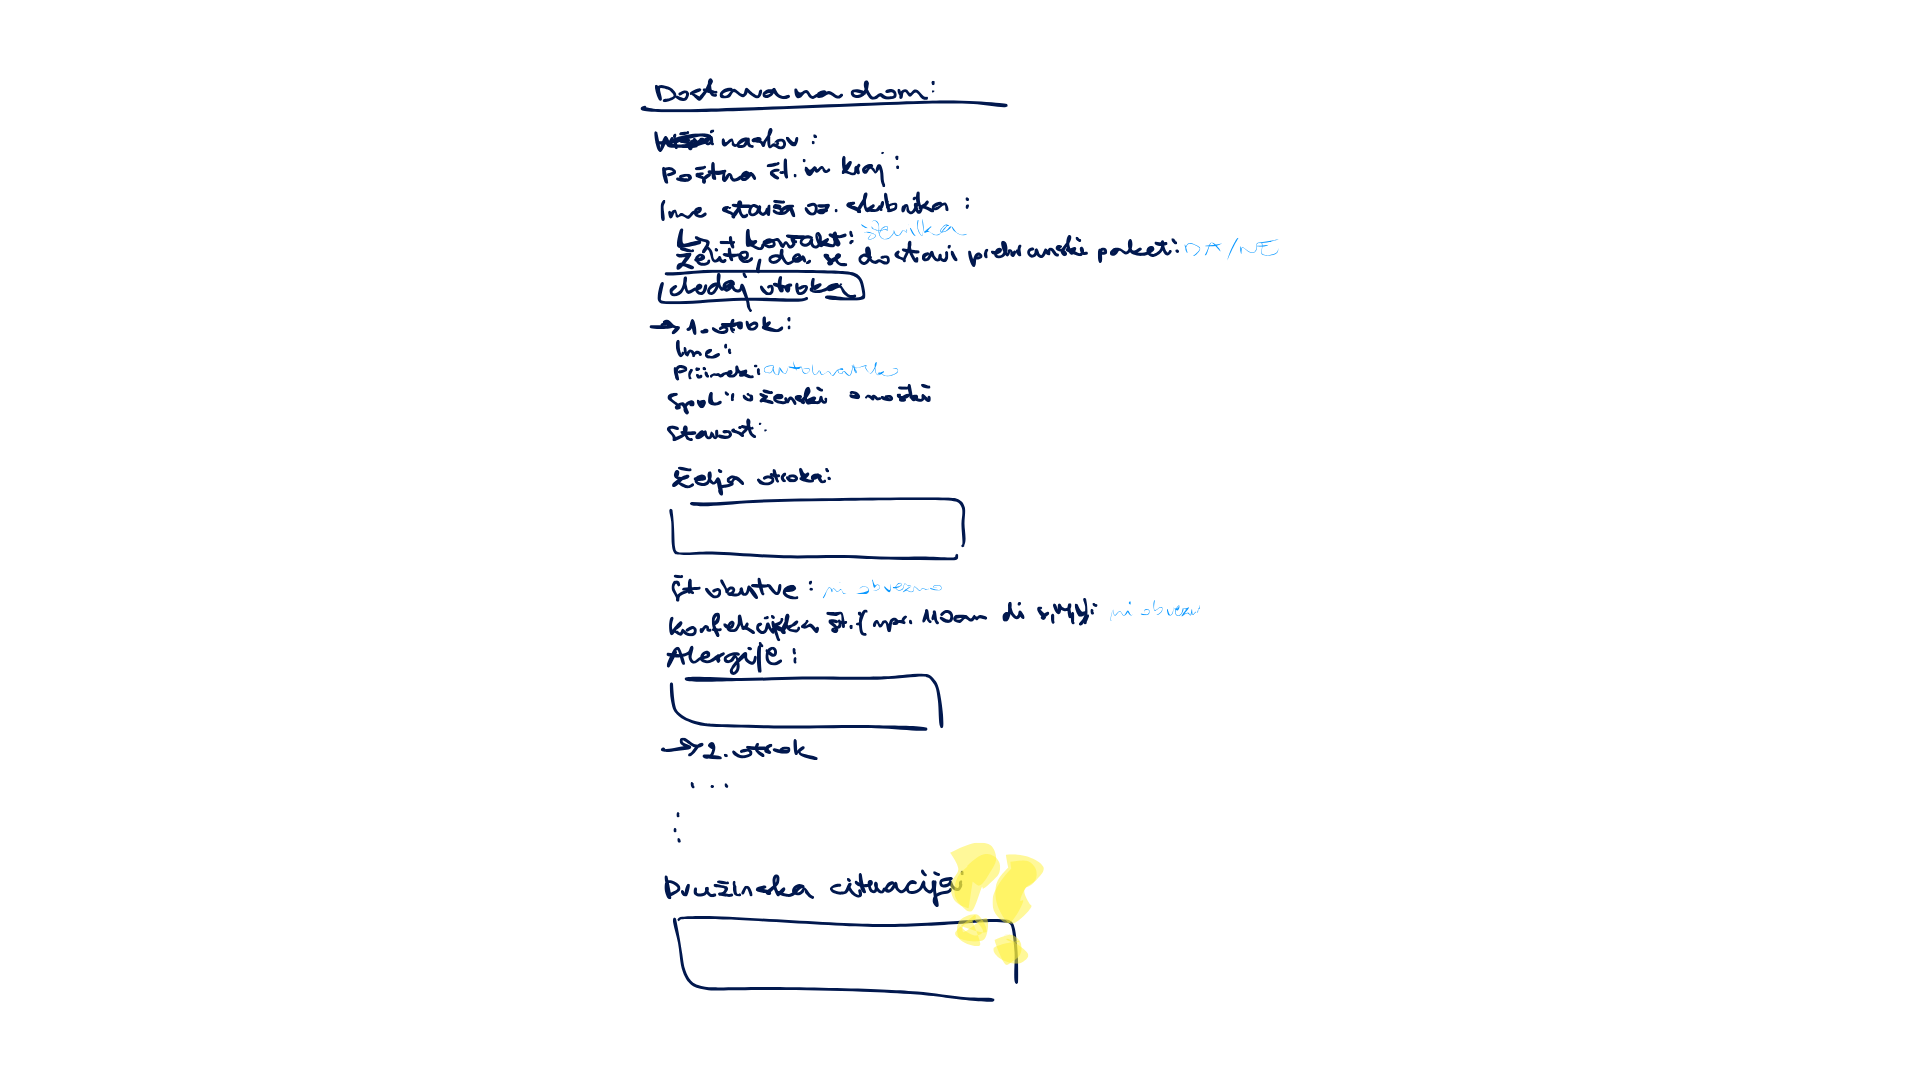 Dostava na dom:
naslov:
Poštna št. in kraj:
Ime starša oz. skrbnika:
↳ + kontakt: številka
Želite, da se dostavi prehranski paket: DA/NE
dodaj otroka
→ 1. otrok:
Ime:
Priimek: avtomatsko
Spol: o ženski o moški
Starost:
Želja otroka:
Št obutve: ni obvezno
Konfekcijska št. (npr. 110cm ali s, M, L): ni obvezn
Alergije:
→ 2. otrok
...
⋮
Družinska cituacija: